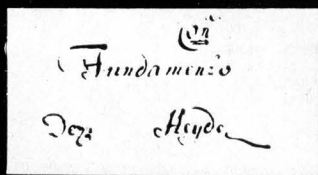 Con
Fundamento
Der Heyde